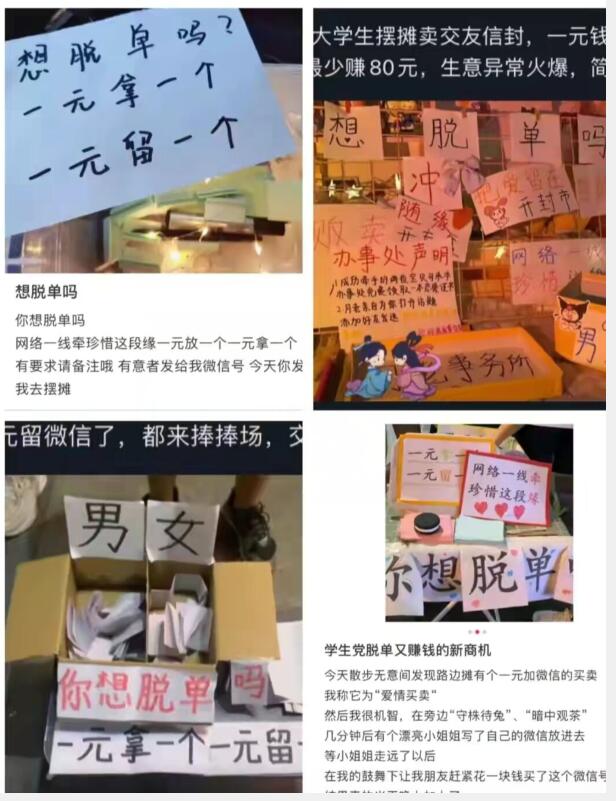 想脱单吗?
一元拿一个
一元留一个
想脱单吗
你想脱单吗
网络一线牵珍惜这段缘一元放一个一元拿一个
有要求请备注哦 有意者发给我微信号 今天你发
我去摆摊
大学生摆摊卖交友信封，一元钱
最少赚80元，生意异常火爆，简
想脱单吗
冲
随缘
把爱留在
开封市
贩卖
办事处声明
网络一线
珍惜这
男
事务所
元留微信了，都来捧捧场，交
男 女
你想脱单吗
一元拿一个 一元留一
一元拿一
一元留一
网络一线牵
珍惜这段缘
你想脱单
学生党脱单又赚钱的新商机
今天散步无意间发现路边摊有个一元加微信的买卖
我称它为“爱情买卖“
然后我很机智，在旁边“守株待兔”、“暗中观茶”
几分钟后有个漂亮小姐姐写了自己的微信放进去
等小姐姐走远了以后
在我的鼓舞下让我朋友赶紧花一块钱买了这个微信号